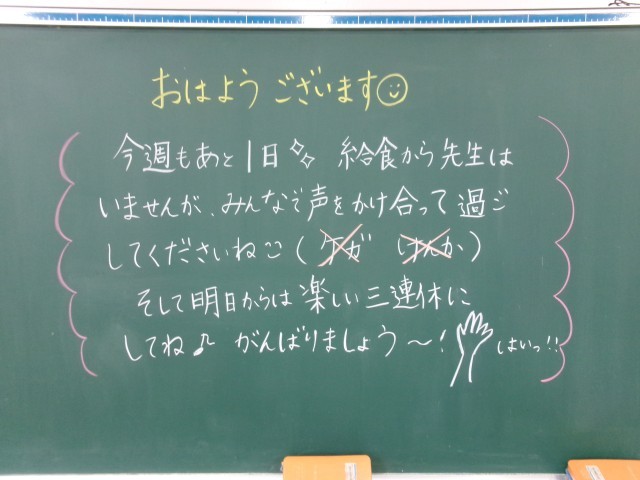 おはようございます☺
今週もあと1日✧✧ 給食から先生は
いませんが、みんなで声をかけ合って過ご
してくださいね☺(ケガ けんか)
そして明日からは楽しい三連休に
してね♪ がんばりましょう〜! はいっ!!